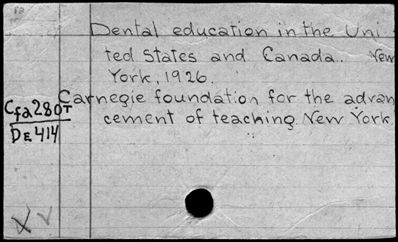 Dental education in the Uni-
ted States and Canada. New
York, 1926.
Carnegie foundation for the advan
cement of teaching. New York.
Cfa280T
DE414